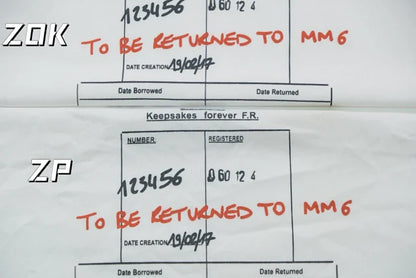 ZOK
123456 060 12 4
TO BE RETURNED TO MM6
DATE CREATION 19/02/17
Date Borrowed Date Returned
Keepsakes forever F.R.
ZP
NUMBER: REGISTERED
123456 060 12 4
TO BE RETURNED TO MM6
DATE CREATION 19/02/17
Date Borrowed Date Returned